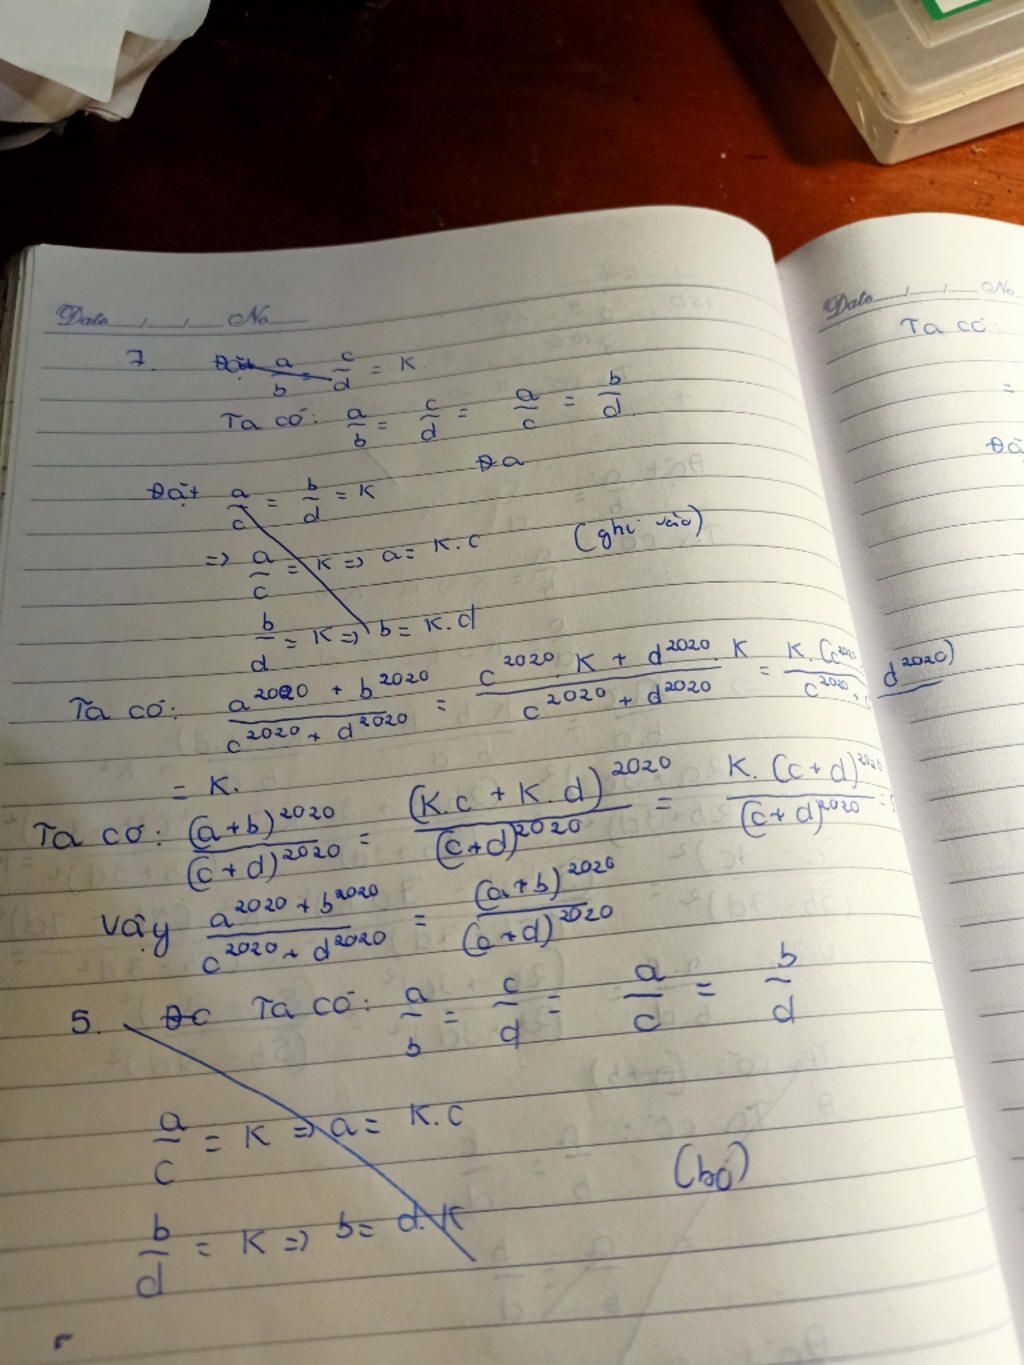 Date , , No
7. Đặt a/b = c/d = K
Ta có: a/b = c/d = a/c = b/d
Đa
Đặt a/c = b/d = K
=> a/c = K => a = K.c (ghi vào)
b/d = K => b = K.d
Ta có: (a^2020 + b^2020)/(c^2020 + d^2020) = (c^2020 . K + d^2020 . K)/(c^2020 + d^2020) = K.(c^2020 d^2020)/c^2020 +
= K.
Ta có: (a+b)^2020/(c+d)^2020 = (K.c + K.d)^2020/(c+d)^2020 = K.(c+d)^2020/(c+d)^2020 =
Vậy (a^2020 + b^2020)/(c^2020 + d^2020) = (a+b)^2020/(c+d)^2020
5. Đc Ta có: a/b = c/d = a/c = b/d
a/c = K => a = K.c
(bỏ)
b/d = K => b = d.K
Date , , No
Ta có:
=
Đặ